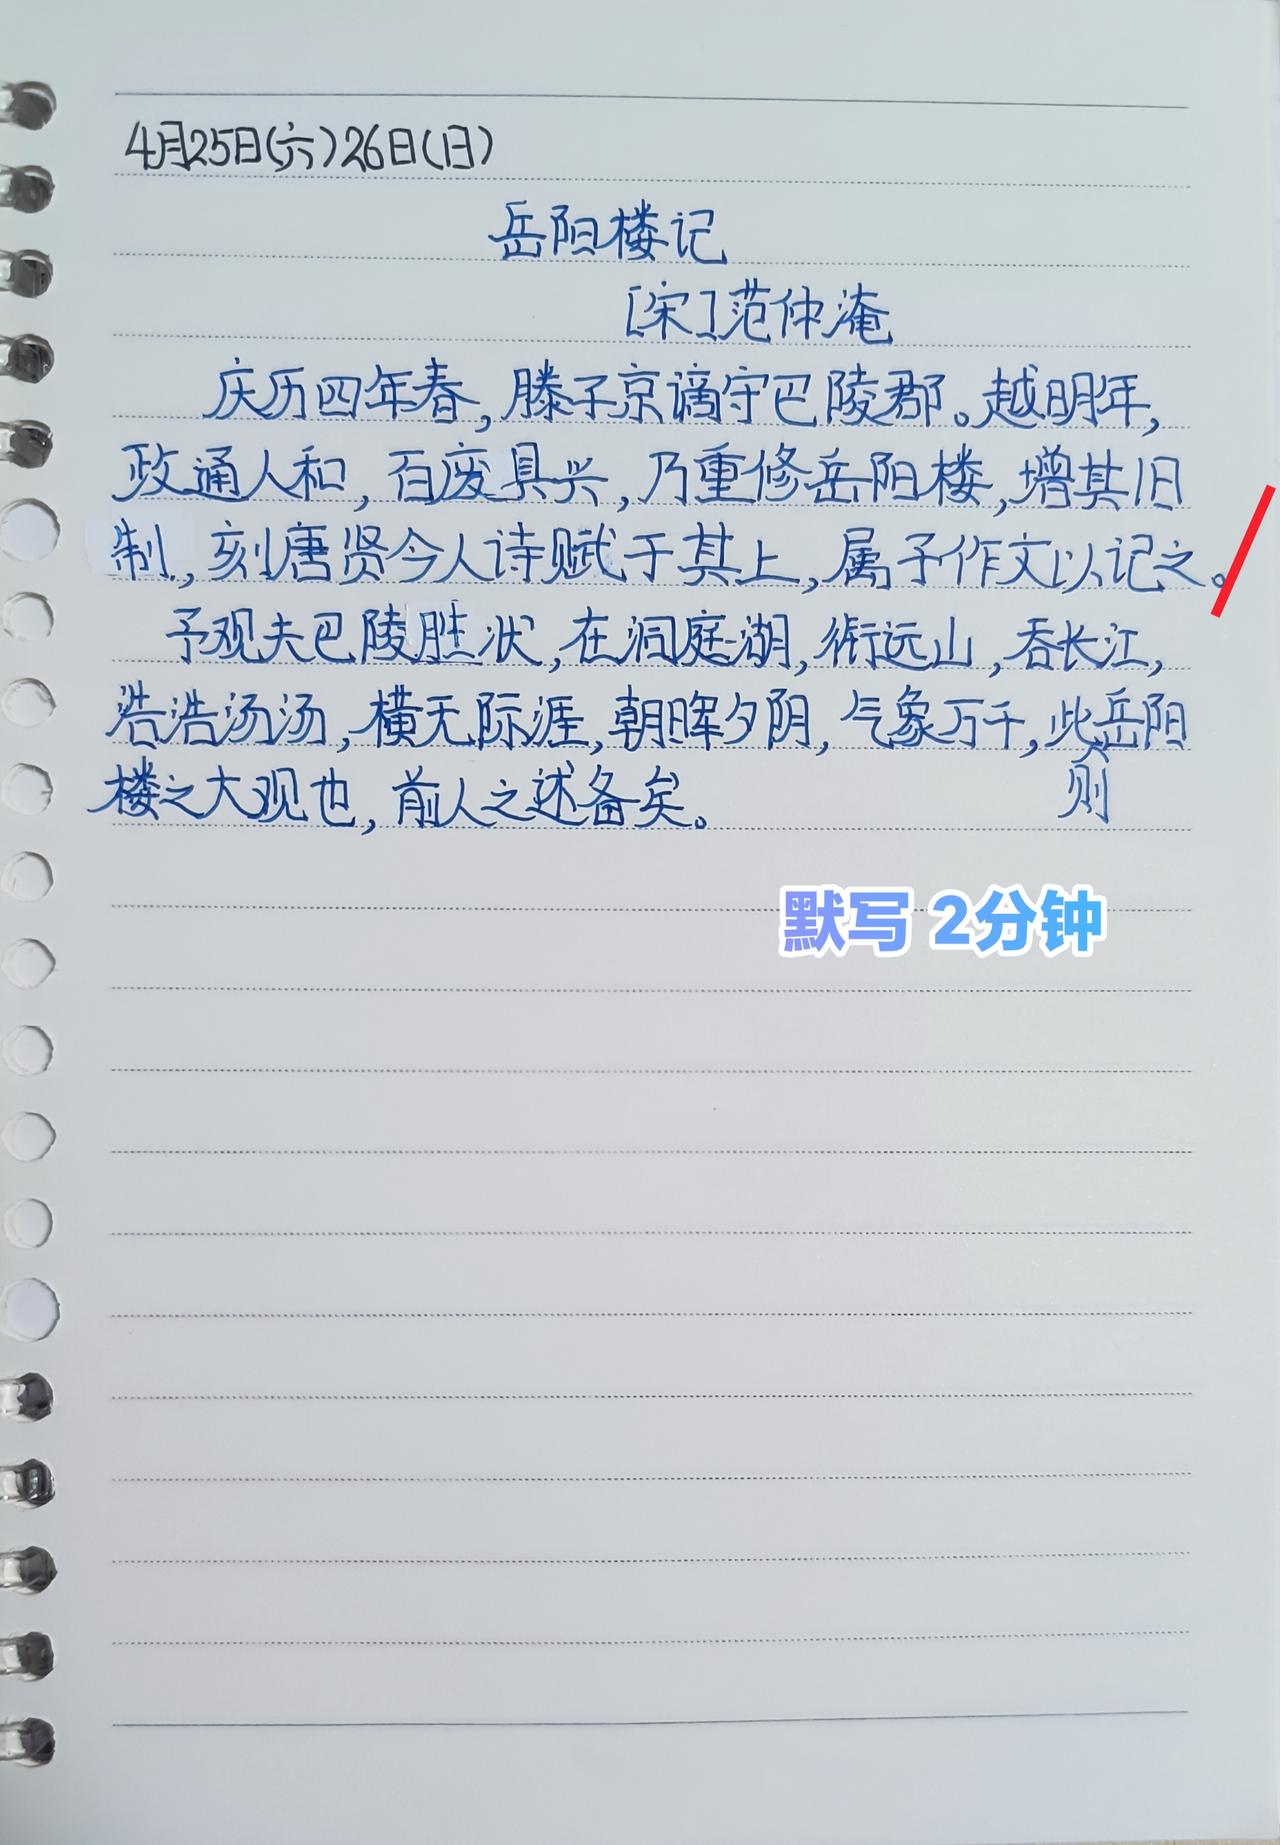 4月25日(六)26日(日)
岳阳楼记
[宋]范仲淹
庆历四年春,滕子京谪守巴陵郡。越明年,
政通人和,百废具兴,乃重修岳阳楼,增其旧
制,刻唐贤今人诗赋于其上,属予作文以记之。
予观夫巴陵胜状,在洞庭湖,衔远山,吞长江,
浩浩汤汤,横无际涯,朝晖夕阴,气象万千,此岳阳
则
楼之大观也,前人之述备矣。
默写 2分钟